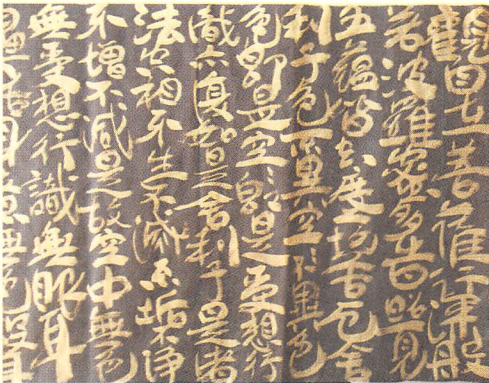 觀自在菩薩行深般
若波羅蜜多時照見
五蘊皆空度一切苦厄舍
利子色不異空〻不異色
色即是空〻即是色受想行
識亦復如是舍利子是諸
法空相不生不滅不垢不淨
不增不減是故空中無色
無受想行識無眼耳
鼻舌身意無色聲